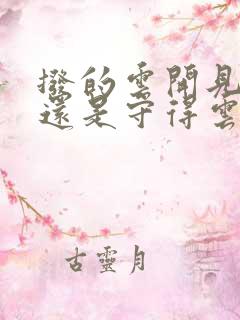 撥的雲開見
還是守得雲
古靈月